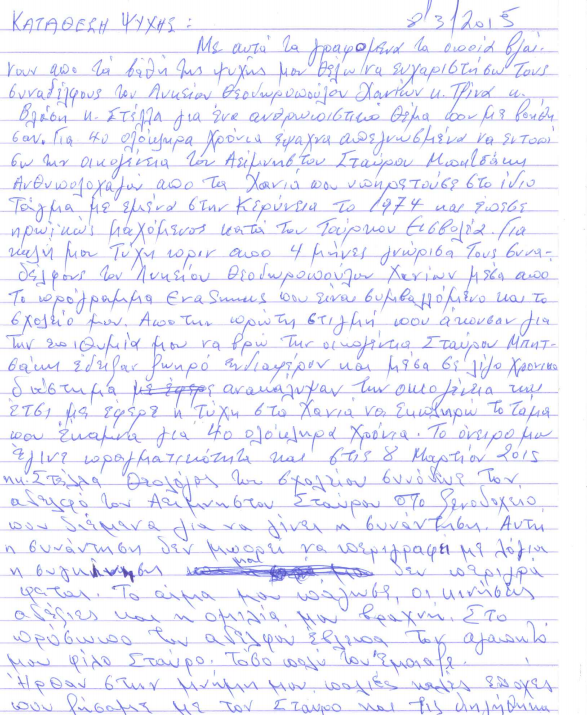 ΚΑΤΑΘΕΣΗ ΨΥΧΗΣ: 8/3/2015
Με αυτά τα γραφόμενα τα οποία βγαί-
νουν από τα βάθη της ψυχής μου θέλω να ευχαριστήσω τους
συναδέλφους του Λυκείου Θεοδωροπούλου Χανίων κ. κ.
κ. Στέλλα για ένα ανθρωπιστικό θέμα που με βοήθη
σαν. Για 40 ολόκληρα χρόνια έψαχνα απεγνωσμένα να εντοπί
σω την οικογένεια του Αείμνηστου Σταύρου
Ανθυπολοχαγού από τα Χανιά που υπηρετούσε στο ίδιο
Τάγμα με εμένα στην Κερύνεια το 1974 και έπεσε
ηρωικώς μαχόμενος κατά την Τούρκικη Εισβολέα. Για
καλή μου τύχη πριν από 4 μήνες γνώρισα τους συνα-
δέλφους του Λυκείου Θεοδωροπούλου Χανίων μέσα από
το πρόγραμμα Erasmus που είναι συμβαλλόμενο και το
σχολείο μου. Από την πρώτη στιγμή που άκουσαν για
την επιθυμία μου να βρω την οικογένεια Σταύρου
έδειξαν ζωηρό ενδιαφέρον και μέσα σε λίγο χρονικό
διάστημα ανακάλυψαν την οικογένεια και
έτσι με έφερε η τύχη στα Χανιά να εκπληρώ το τάμα
που έκαμνα για 40 ολόκληρα χρόνια. Το όνειρο μου
έγινε πραγματικότητα και στις 8 Μαρτίου 2015
η κ. Στέλλα Θεολόγος του σχολείου συνόδευε τον
αδελφό του Αείμνηστου Σταύρου στο ξενοδοχείο
που διέμενα για να γίνει η συνάντηση. Αυτή
η συνάντηση δεν μπορεί να περιγραφεί με λόγια
η συγκίνηση μου δεν περιγρά
φεται. Το αίμα μου πάγωσε, οι κινήσεις
αδέξιες και η ομιλία μου βραχνή. Στο
πρόσωπο του αδελφού έβλεπα τον αγαπητό
μου φίλο Σταύρο. Τόσο πολύ του έμοιαζε.
Ήρθαν στην μνήμη μου παλιές καλές εποχές
που ζήσαμε με τον Σταύρο και τις διηγήθηκα